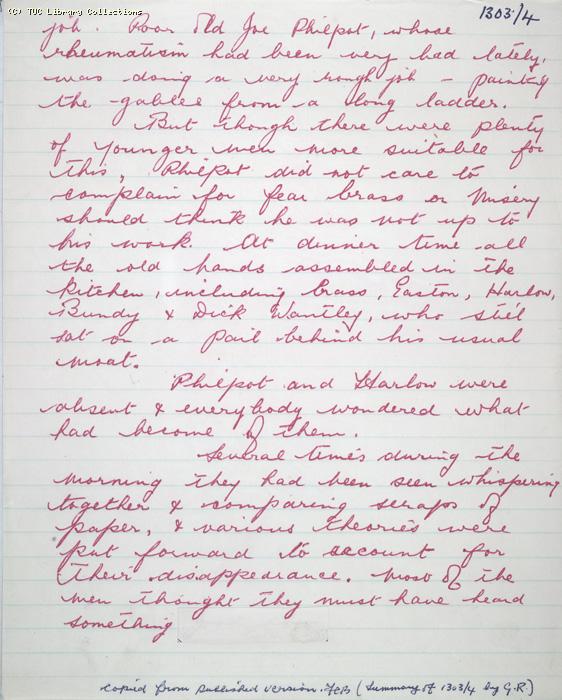 (C) TUC Library Collections
1303/4
job. Poor Old Joe Philpot, whose
rheumatism had been very bad lately,
was doing a very rough job - painting
the gables from a long ladder.
But though there were plenty
of younger men more suitable for
this, Philpot did not care to
complain for fear Crass or Misery
should think he was not up to
his work. At dinner time all
the old hands assembled in the
kitchen, including Crass, Easton, Harlow,
Bundy & Dick Wantley, who still
sat on a pail behind his usual
moat.
Philpot and Harlow were
absent & everybody wondered what
had become of them.
Several times during the
morning they had been seen whispering
together & comparing scraps of
paper, & various theories were
put forward to account for
their disappearance. Most of the
men thought they must have heard
something
copied from published version. FCB (Summary of 1303/4 by G.R.)